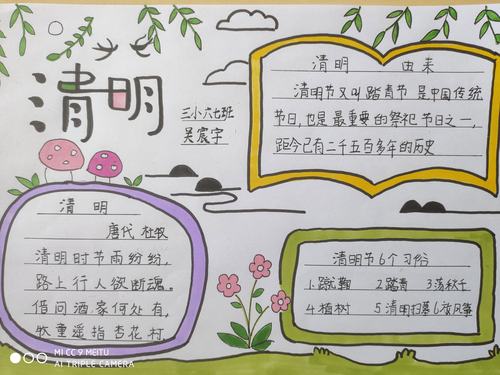 清明
三小六七班
吴宸宇
清明 由来
清明节又叫踏青节 是中国传统
节日,也是最重要的祭祀节日之一,
距今已有二千五百多年的历史
清明
唐代 杜牧
清明时节雨纷纷,
路上行人欲断魂。
借问酒家何处有,
牧童遥指杏花村.
清明节6个习俗
1.蹴鞠 2踏青 3荡秋千
4.植树 5清明扫墓 6放风筝
MI CC 9 MEITU
AI TRIPLE CAMERA